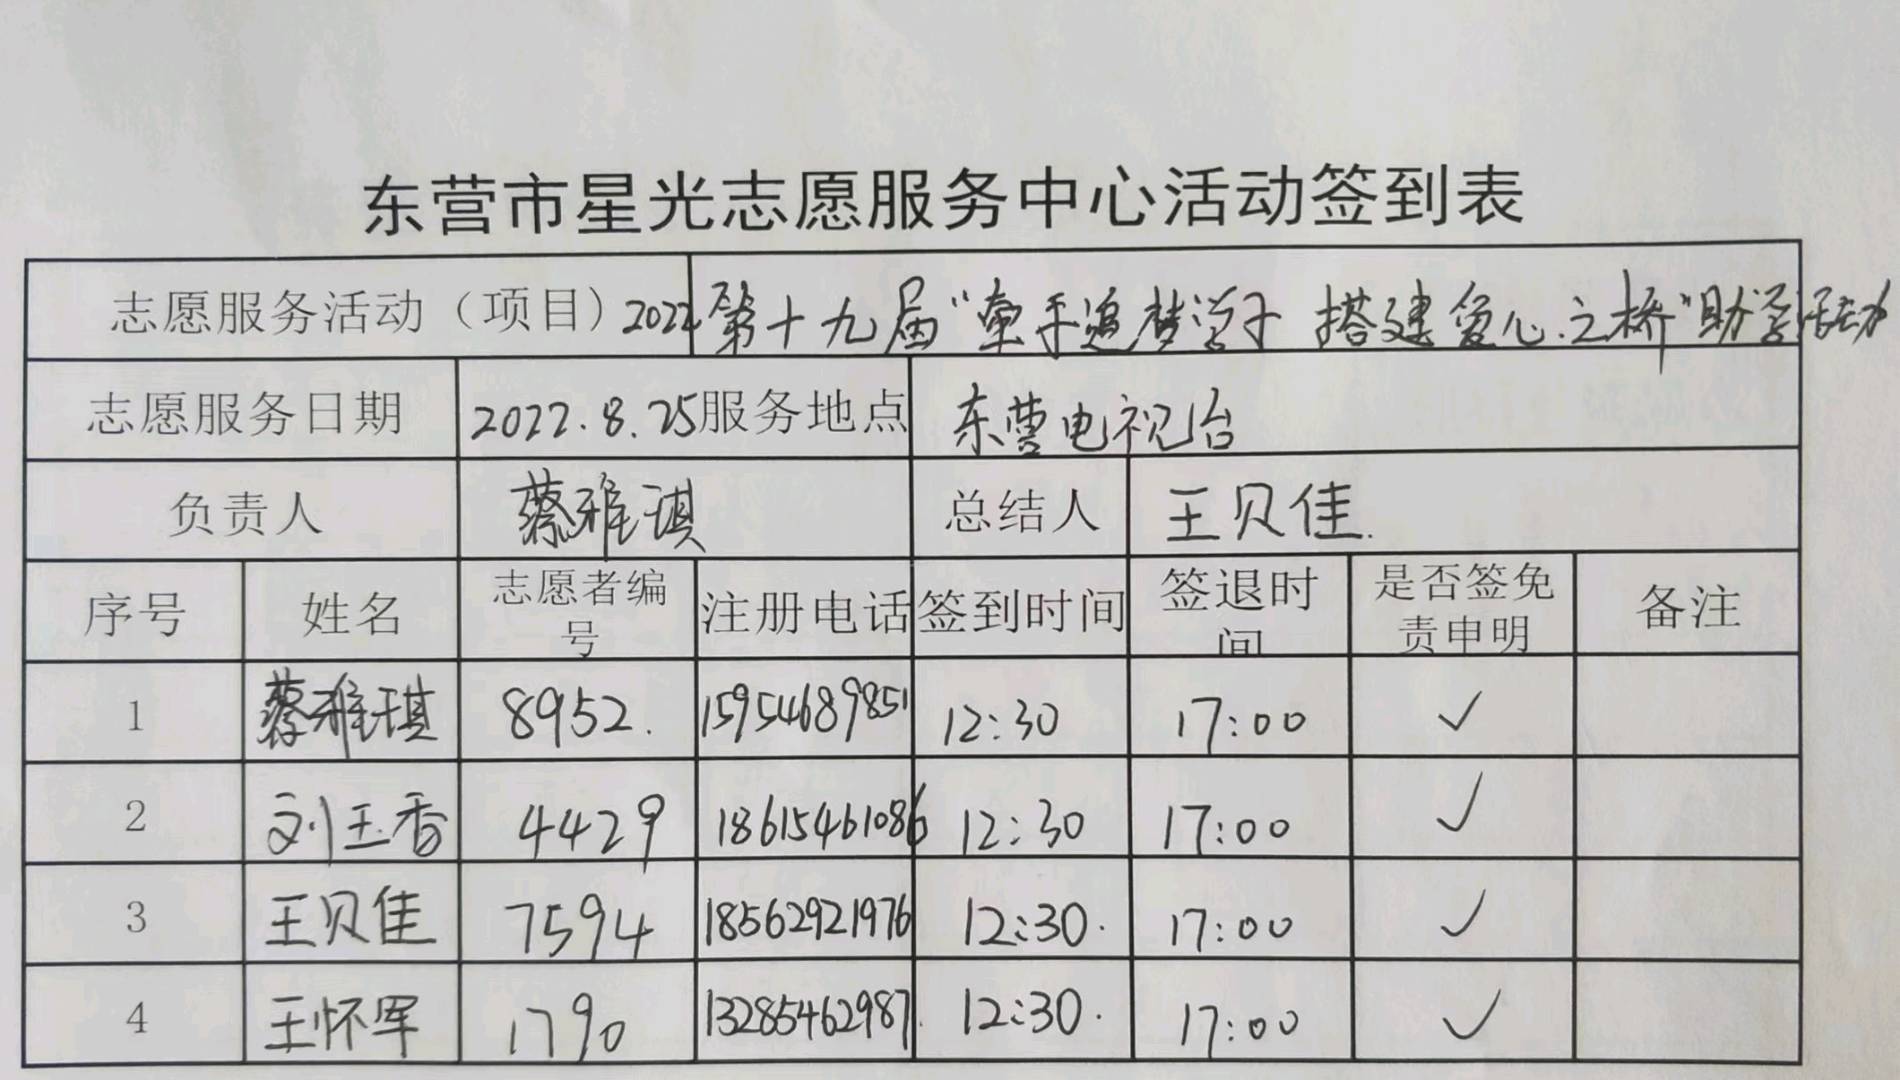 东营市星光志愿服务中心活动签到表
志愿服务活动（项目）2022第十九届“牵手追梦学子 搭建爱心之桥”助学活动
志愿服务日期 2022.8.25 服务地点 东营电视台
负责人 蔡雅琪 总结人 王贝佳.
序号 姓名 志愿者编号 注册电话 签到时间 签退时间 是否签免责申明 备注
1 蔡雅琪 8952. 15954689851 12:30 17:00 ✓
2 刘玉香 4429 18615461086 12:30 17:00 ✓
3 王贝佳 7594 18562921976 12:30. 17:00 ✓
4 王怀军 1790 13285462987. 12:30. 17:00 ✓